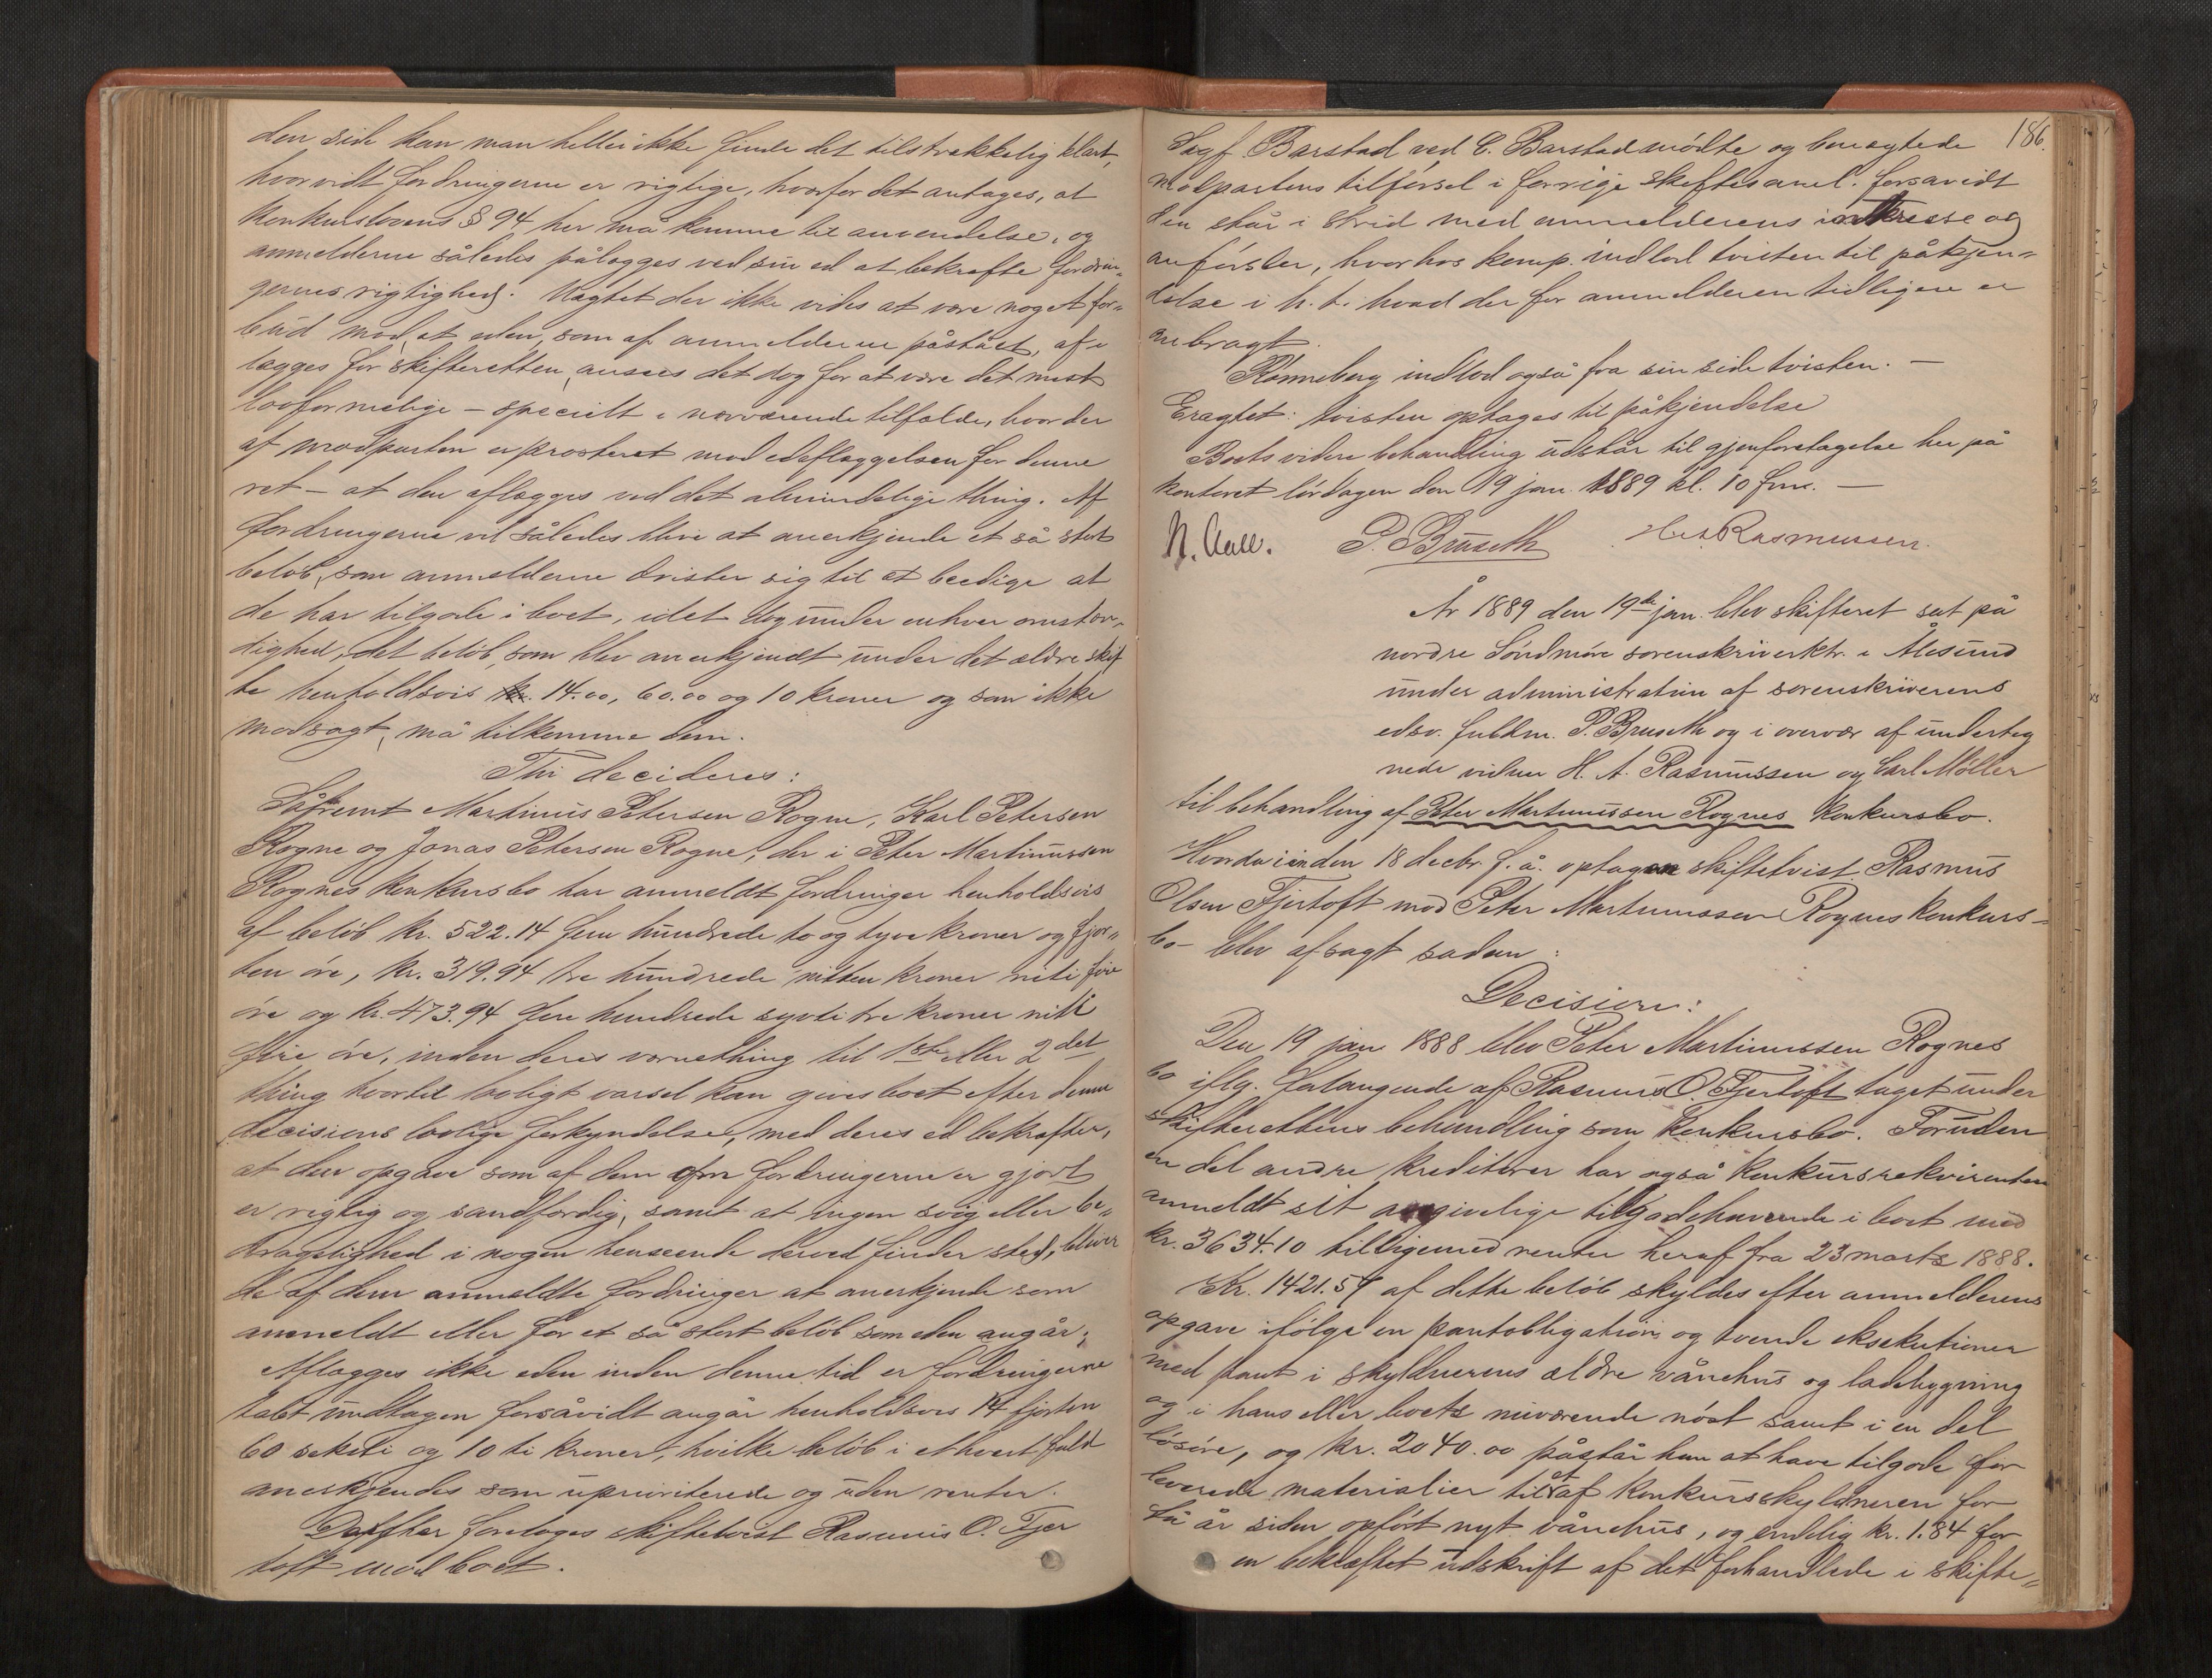 den side kan man heller ikke finde det tilstrækkelig klart,
hvorvidt fordringerne er rigtige, hvorfor det antages, at
konkurslovens § 94 her må komme til anvendelse, og
anmelderne således pålægges ved sin ed at bekræfte fordrin„
gernes rigtighed. Uagtet der ikke vides at være noget for„
bud mod, at eden, som af anmelderne påstået, af„
lægges for skifteretten, ansees det dog for at være det mest
lovformelige – specielt i nærværende tilfælde, hvor der
af modparten er protesteret mod edsaflæggelsen for denne
ret – at den aflægges ved det almindelige thing. Af
fordringerne vil således blive at anerkjende et så stort
beløb, som anmelderne drister sig til at beedige at
de har tilgode i boet, idet dog under enhver omstæn„
dighed, det beløb, som blev anerkjendt under det ældre skif
te henholdsvis kr. 14.00, 60.00 og 10 kroner og som ikke
modsagt, må tilkomme dem.
Thi decideres:
Såfremt Martinus Petersen Rogne, Karl Petersen
Rogne og Jonas Petersen Rogne, der i Peter Martinussen
Rognes konkursbo har anmeldt fordringer henholdsvis
af beløb kr. 522.14 fem hundrede to og tyve kroner og fjor„
ten øre, kr. 319.94 tre hundrede nitten kroner niti fire
øre og kr. 473.94 fire hundrede sytti tre kroner nitti
fire øre, inden deres værnething til 1ste eller 2det
thing hvortil lovligt varsel kan gives boet efter denne
decisions lovlige forkyndelse, med deres ed bekræfter,
at den opgave som af dem om fordringerne er gjort
er rigtig og sandfærdig, samt at ingen svig eller be„
dragelighed i nogen henseende derved finder sted, bliver
de af dem anmeldte fordringer at anerkjende som
anmeldt eller for et så stort beløb som eden angår.
Aflægges ikke eden inden denne tid er fordringerne
tabt undtagen forsåvidt angår henholdsvis 14 fjorten
60 seksti og 10 ti kroner, hvilke beløb i ethvert fald
anerkjendes som uprioriterede og uden renter.
Derefter foretoges skiftetvist Rasmus O. Fjær
toft mod boet.
186.
Sagf. Barstad ved C. Barstad mødte og benægtede
modpartens tilførsel i forrige skiftesaml. forsavidt
den står i strid med anmelderens interesse og
anførsler, hvorhos komp. indlod tvisten til påkjen„
delse i h. t. hvad der for anmelderen tidligere er
anbragt.
Rønneberg indlod også fra sin side tvisten. –
Eragtet: tvisten optages til påkjendelse
Boets videre behandling udstår til gjenforetagelse her på
kontoret lørdagen den 19 jan. 1889 kl. 10 fm. –
N. Aall. P. Bruseth H. A. Rasmussen.
År 1889 den 19de jan. blev skifteret sat på
nordre Søndmøre sorenskriverktr. i Ålesund
under administration af sorenskriverens
edsv. fuldm. P. Bruseth og i overvær af underteg
nede vidner H. A. Rasmussen og Carl Møller
til behandling af Peter Martinussen Rognes konkursbo.
Hvorda i den 18 decbr. f. å. optagen skiftetvist Rasmus
Olsen Fjertoft mod Peter Martinussen Rognes konkurs-
bo – blev afsagt sadan:
Decision:
Den 19 jan 1888 blev Peter Martinussen Rognes
bo iflg. forlangende af Rasmus O. Fjertoft taget under
skifterettens behandling som konkursbo. Foruden
en del andre kreditorer har også konkursrekvirenten
anmeldt sit angivelige tilgodehavende i boet med
kr. 3634.10 tilligemed renter heraf fra 23 marts 1888.
Kr. 1421.54 af dette beløb skyldes efter anmelderens
opgave ifølge en pantobligation og tvende eksekutioner
med pant i skyldnerens ældre vånehus og ladebygning
og i hans eller boets nuværende nøst samt i en del
løsøre, og kr. 2040.00 påstår han at have tilgode for
leverede materialier til et af konkursskyldneren for
få år siden opført nyt vånehus, og endelig kr. 1.84 for
en bekræftet udskrift af det forhandlede i skifte„